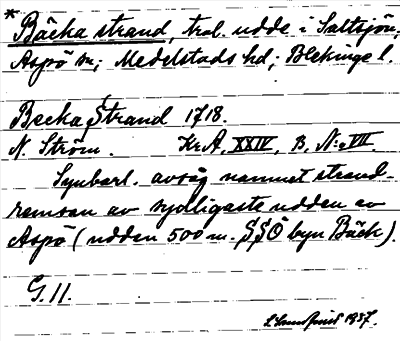 * Bäcka strand, trol. udde i Saltsjön,
Aspö sn; Medelstads hd; Blekinge l.
Becka Strand 1718.
N. Ström. Kr.A, XXIV, B, N:o VII.
Synbarl. avsåg namnet strand-
remsan av sydligaste udden av
Aspö (udden 500 m. SSÖ byn Bäck).
G. 11.
1937.